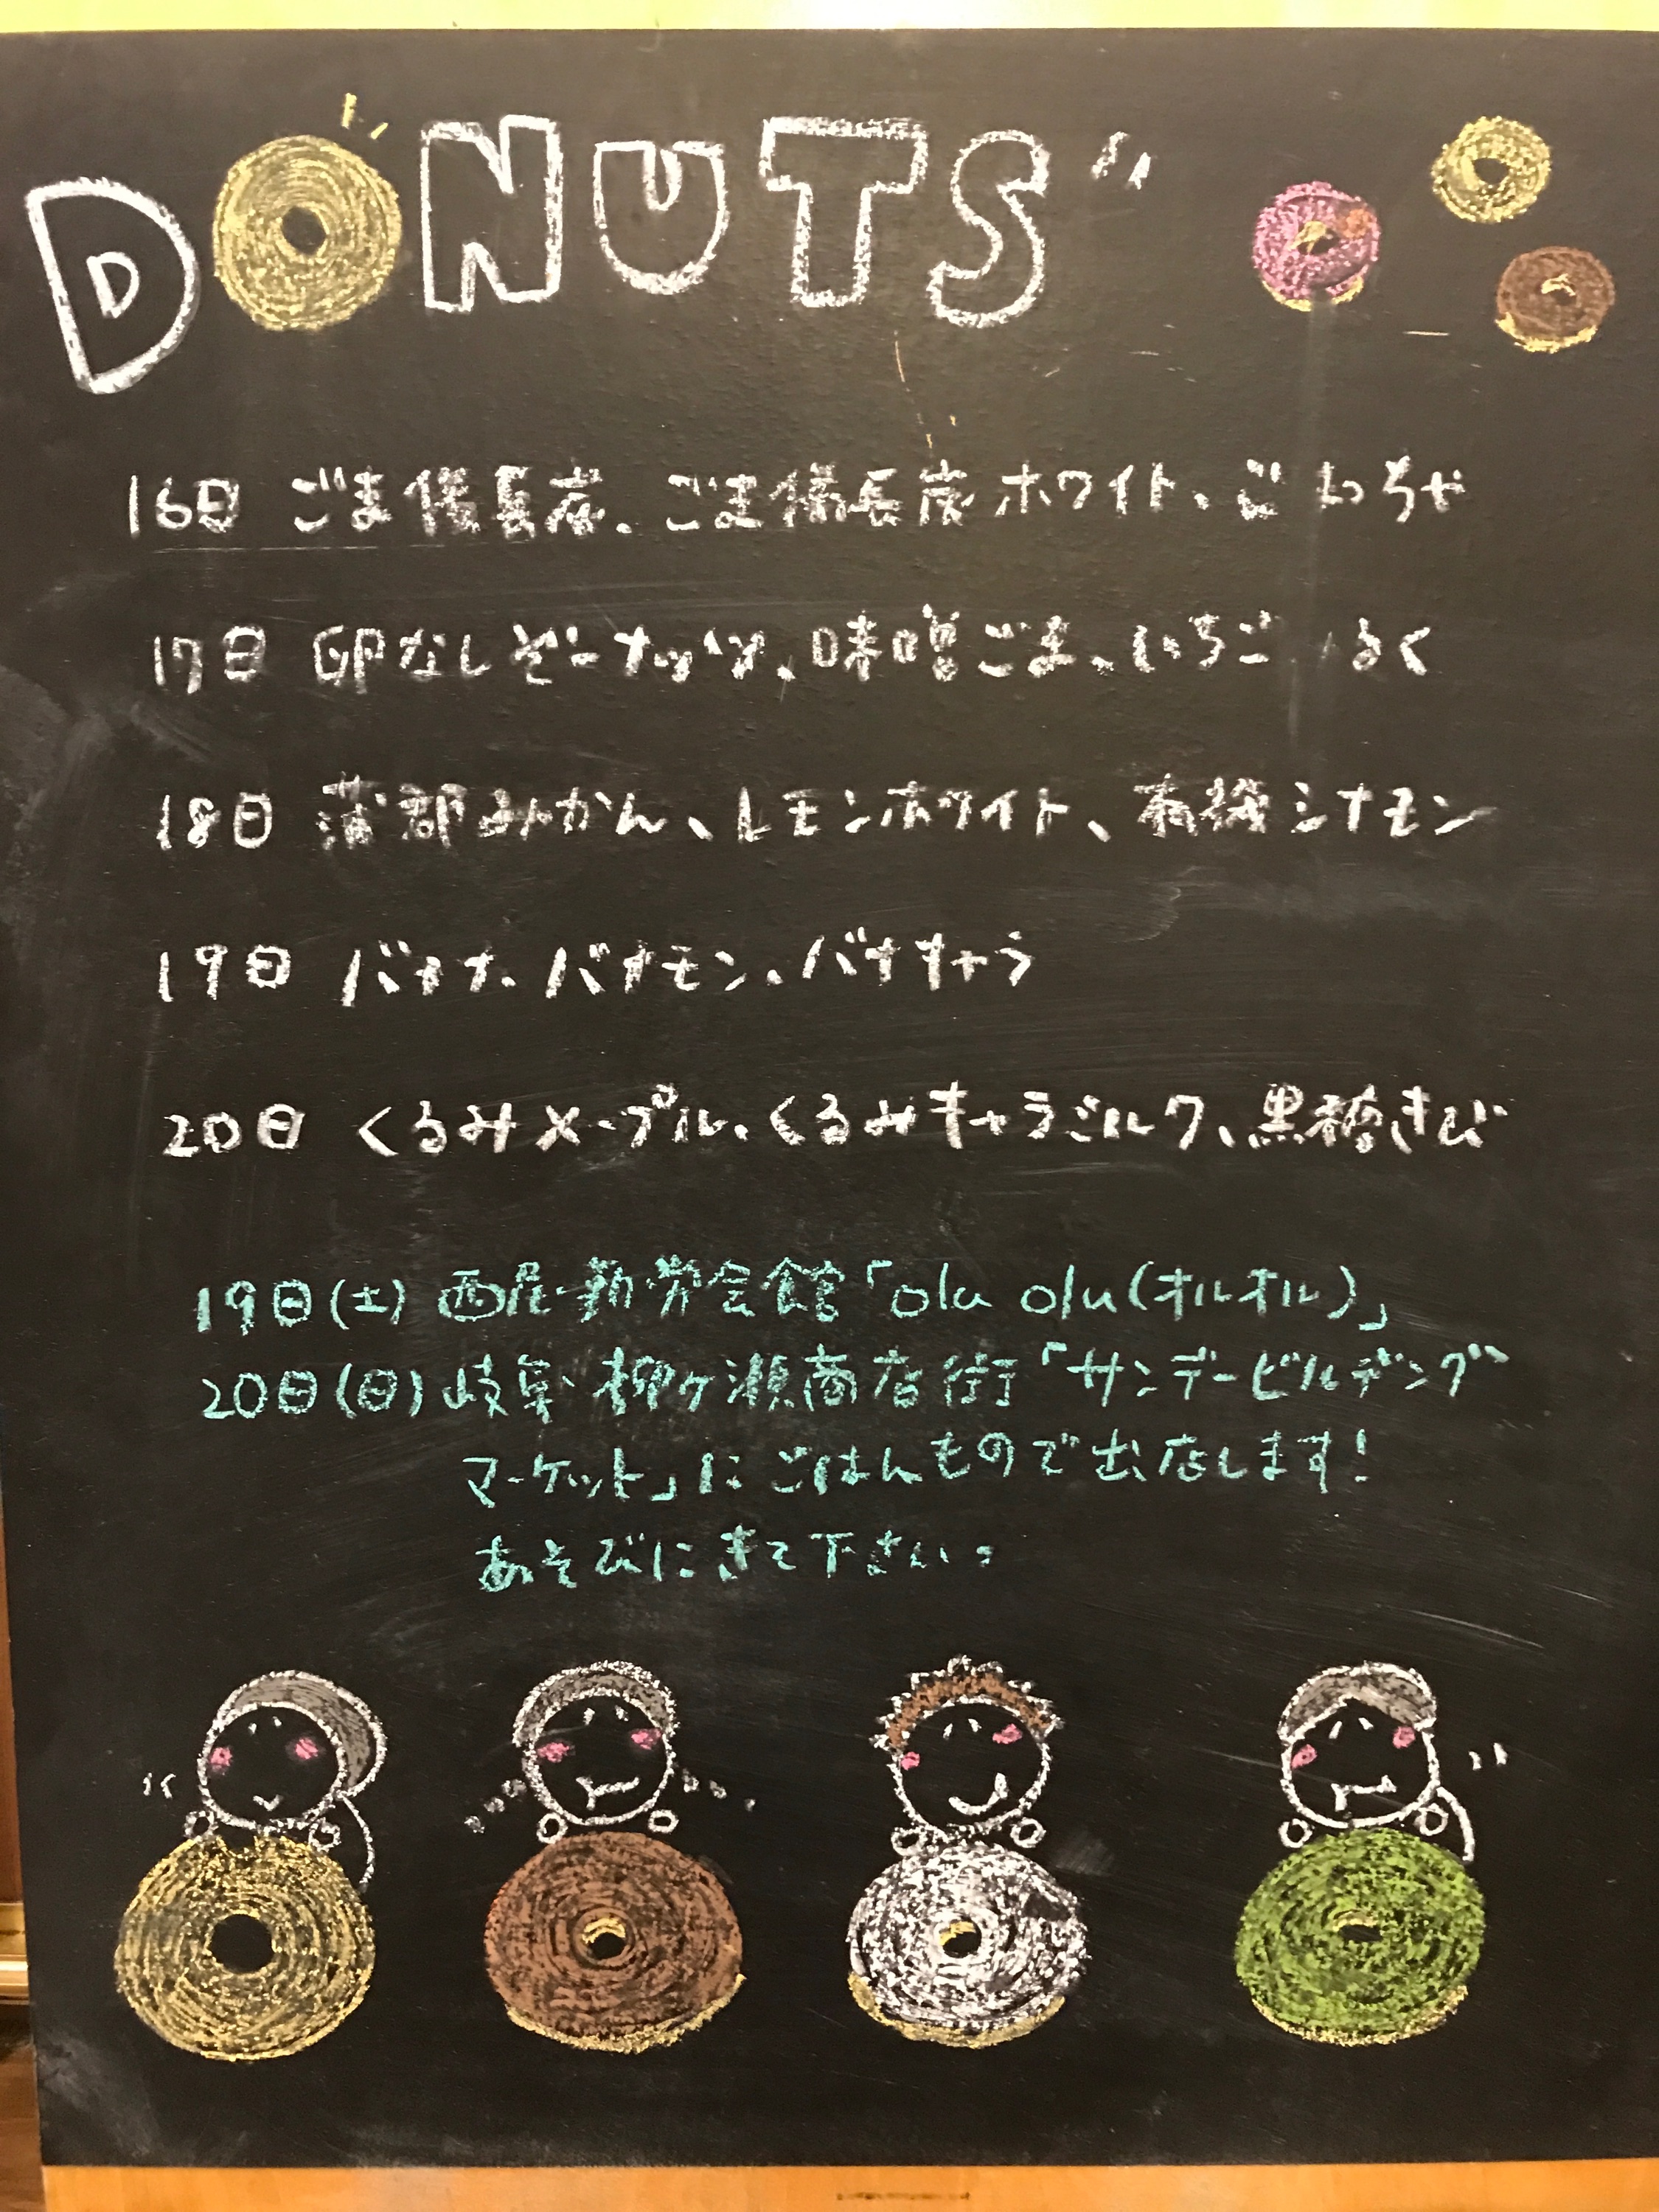 DONUTS
16日 ごま備長炭、ごま備長炭ホワイト、ご まっちゃ
17日 卵なしピーナッツ、味噌ごま、いちご みるく
18日 蒲郡みかん、レモンホワイト、有機シナモン
19日 バナナ、バナモン、バナキャラ
20日 くるみメープル、くるみキャラミルク、黒糖きび
19日(土) 西尾勤労会館「olu olu(オルオル)」
20日(日) 岐阜 柳ヶ瀬商店街「サンデービルヂング
マーケット」にごはんもので出店します!
あそびにきて下さい。